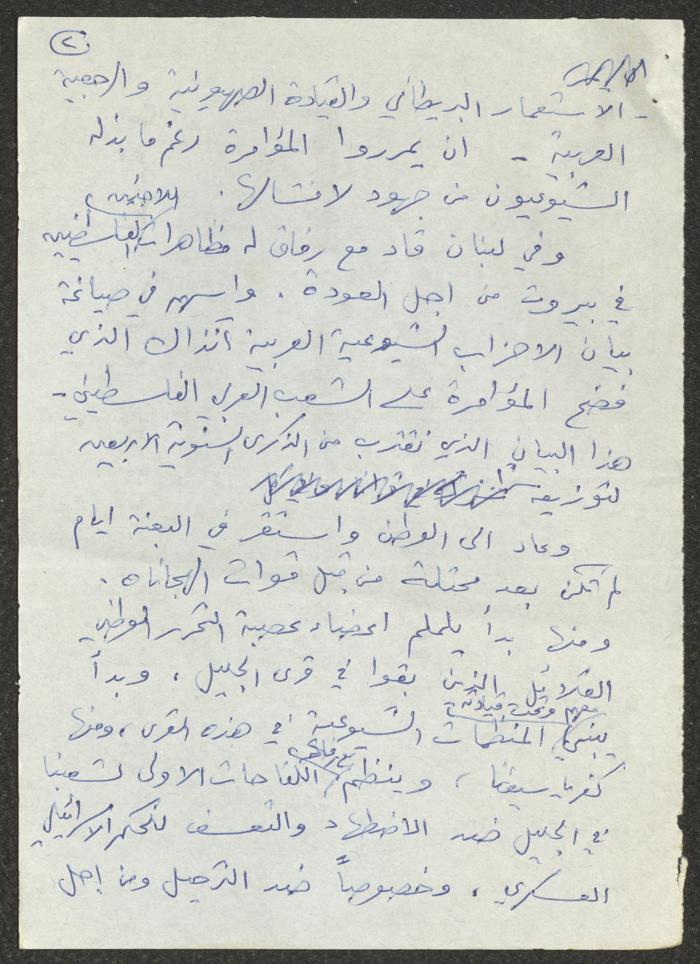 (٢
- الاستعمار البريطاني والقيادة الصهيونية والرجعية
العربية - ان يمرروا المؤامرة رغم ما بذله
الشيوعيون من جهود لافشالها.
وفي لبنان قاد مع رفاق له مظاهرات اللاجئين الفلسطينيين
في بيروت من اجل العودة. واسهم في صياغة
بيان الاحزاب الشيوعية العربية آنذاك الذي
فضح المؤامرة على الشعب العربي الفلسطيني -
هذا البيان الذي نقترب من الذكرى السنوية الاربعين
لتوزيعه
وعاد الى الوطن واستقر في البعنة ايام
لم تكن بعد محتلة من قبل قوات الهاجاناه.
ومنها بدأ يلملم اعضاء عصبة التحرر الوطني
القلائل الذين بقوا في قرى الجليل، وبدأ
يبني معهم وتحت قيادته المنظمات الشيوعية في هذه القرى، ومنها
كفرياسيف، وينظم مع رفاقه الكفاحات الاولى لشعبنا
في الجليل ضد الاضطهاد والتعسف للحكم الاسرائيلي
العسكري، وخصوصاً ضد الترحيل ومن اجل